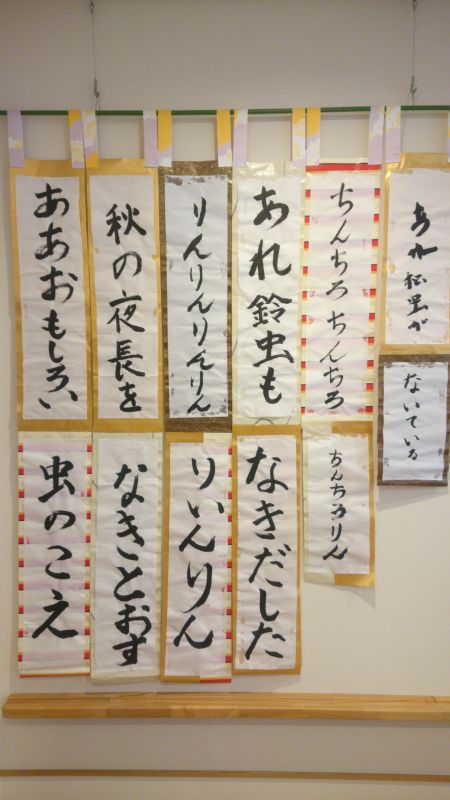 あれ松虫が
ないている
ちんちろちんちろ
ちんちろりん
あれ鈴虫も
なきだした
りんりんりんりん
りいんりん
秋の夜長を
なきとおす
ああおもしろい
虫のこえ